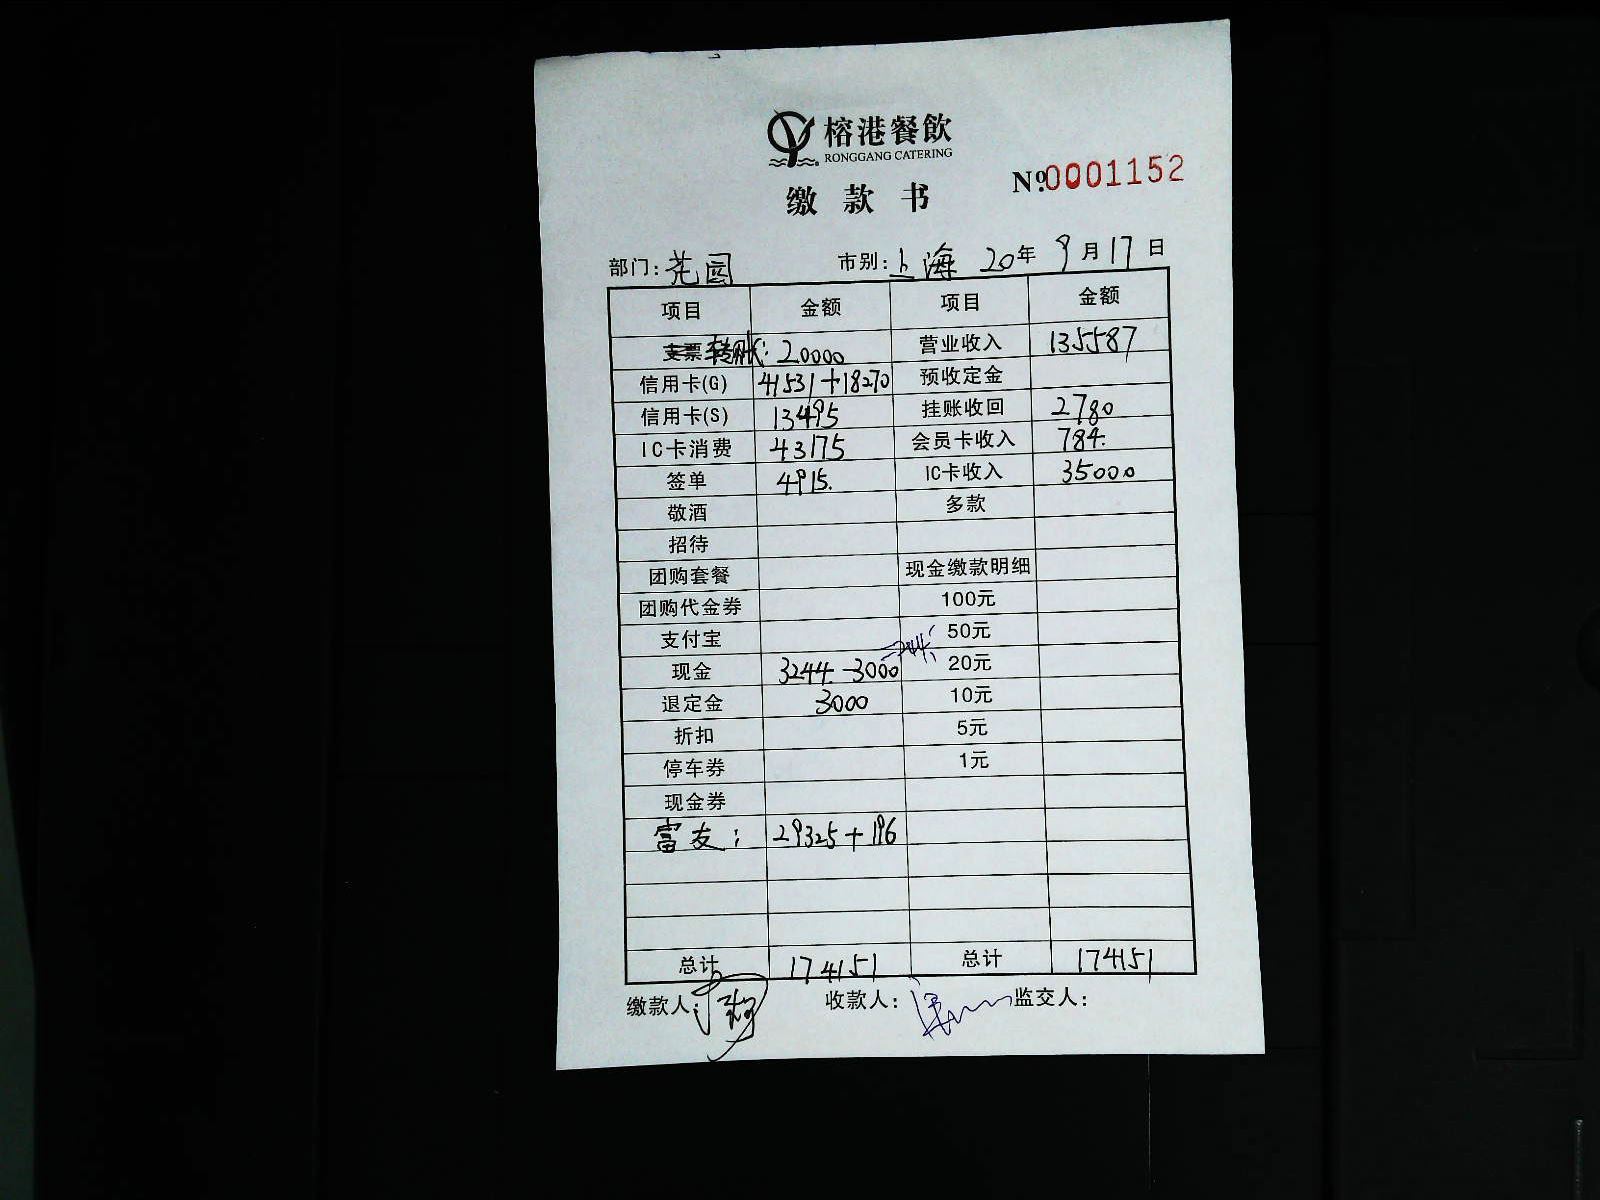 榕港餐飲
RONGGANG CATERING
缴款书 Nº:0001152
部门:花园 市别:上海 20年9月17日
项目 金额 项目 金额
支票 转账: 20000 营业收入 135587
信用卡(G) 41531+18270 预收定金
信用卡(S) 13495 挂账收回 2780
IC卡消费 43175 会员卡收入 784.
签单 4915. IC卡收入 35000
敬酒 多款
招待
团购套餐 现金缴款明细
团购代金券 100元
支付宝 50元
现金 3244.-3000 20元
退定金 3000 10元
折扣 5元
停车券 1元
现金券
富友: 29325+196
总计 174151 总计 174151
缴款人: 收款人: 监交人: